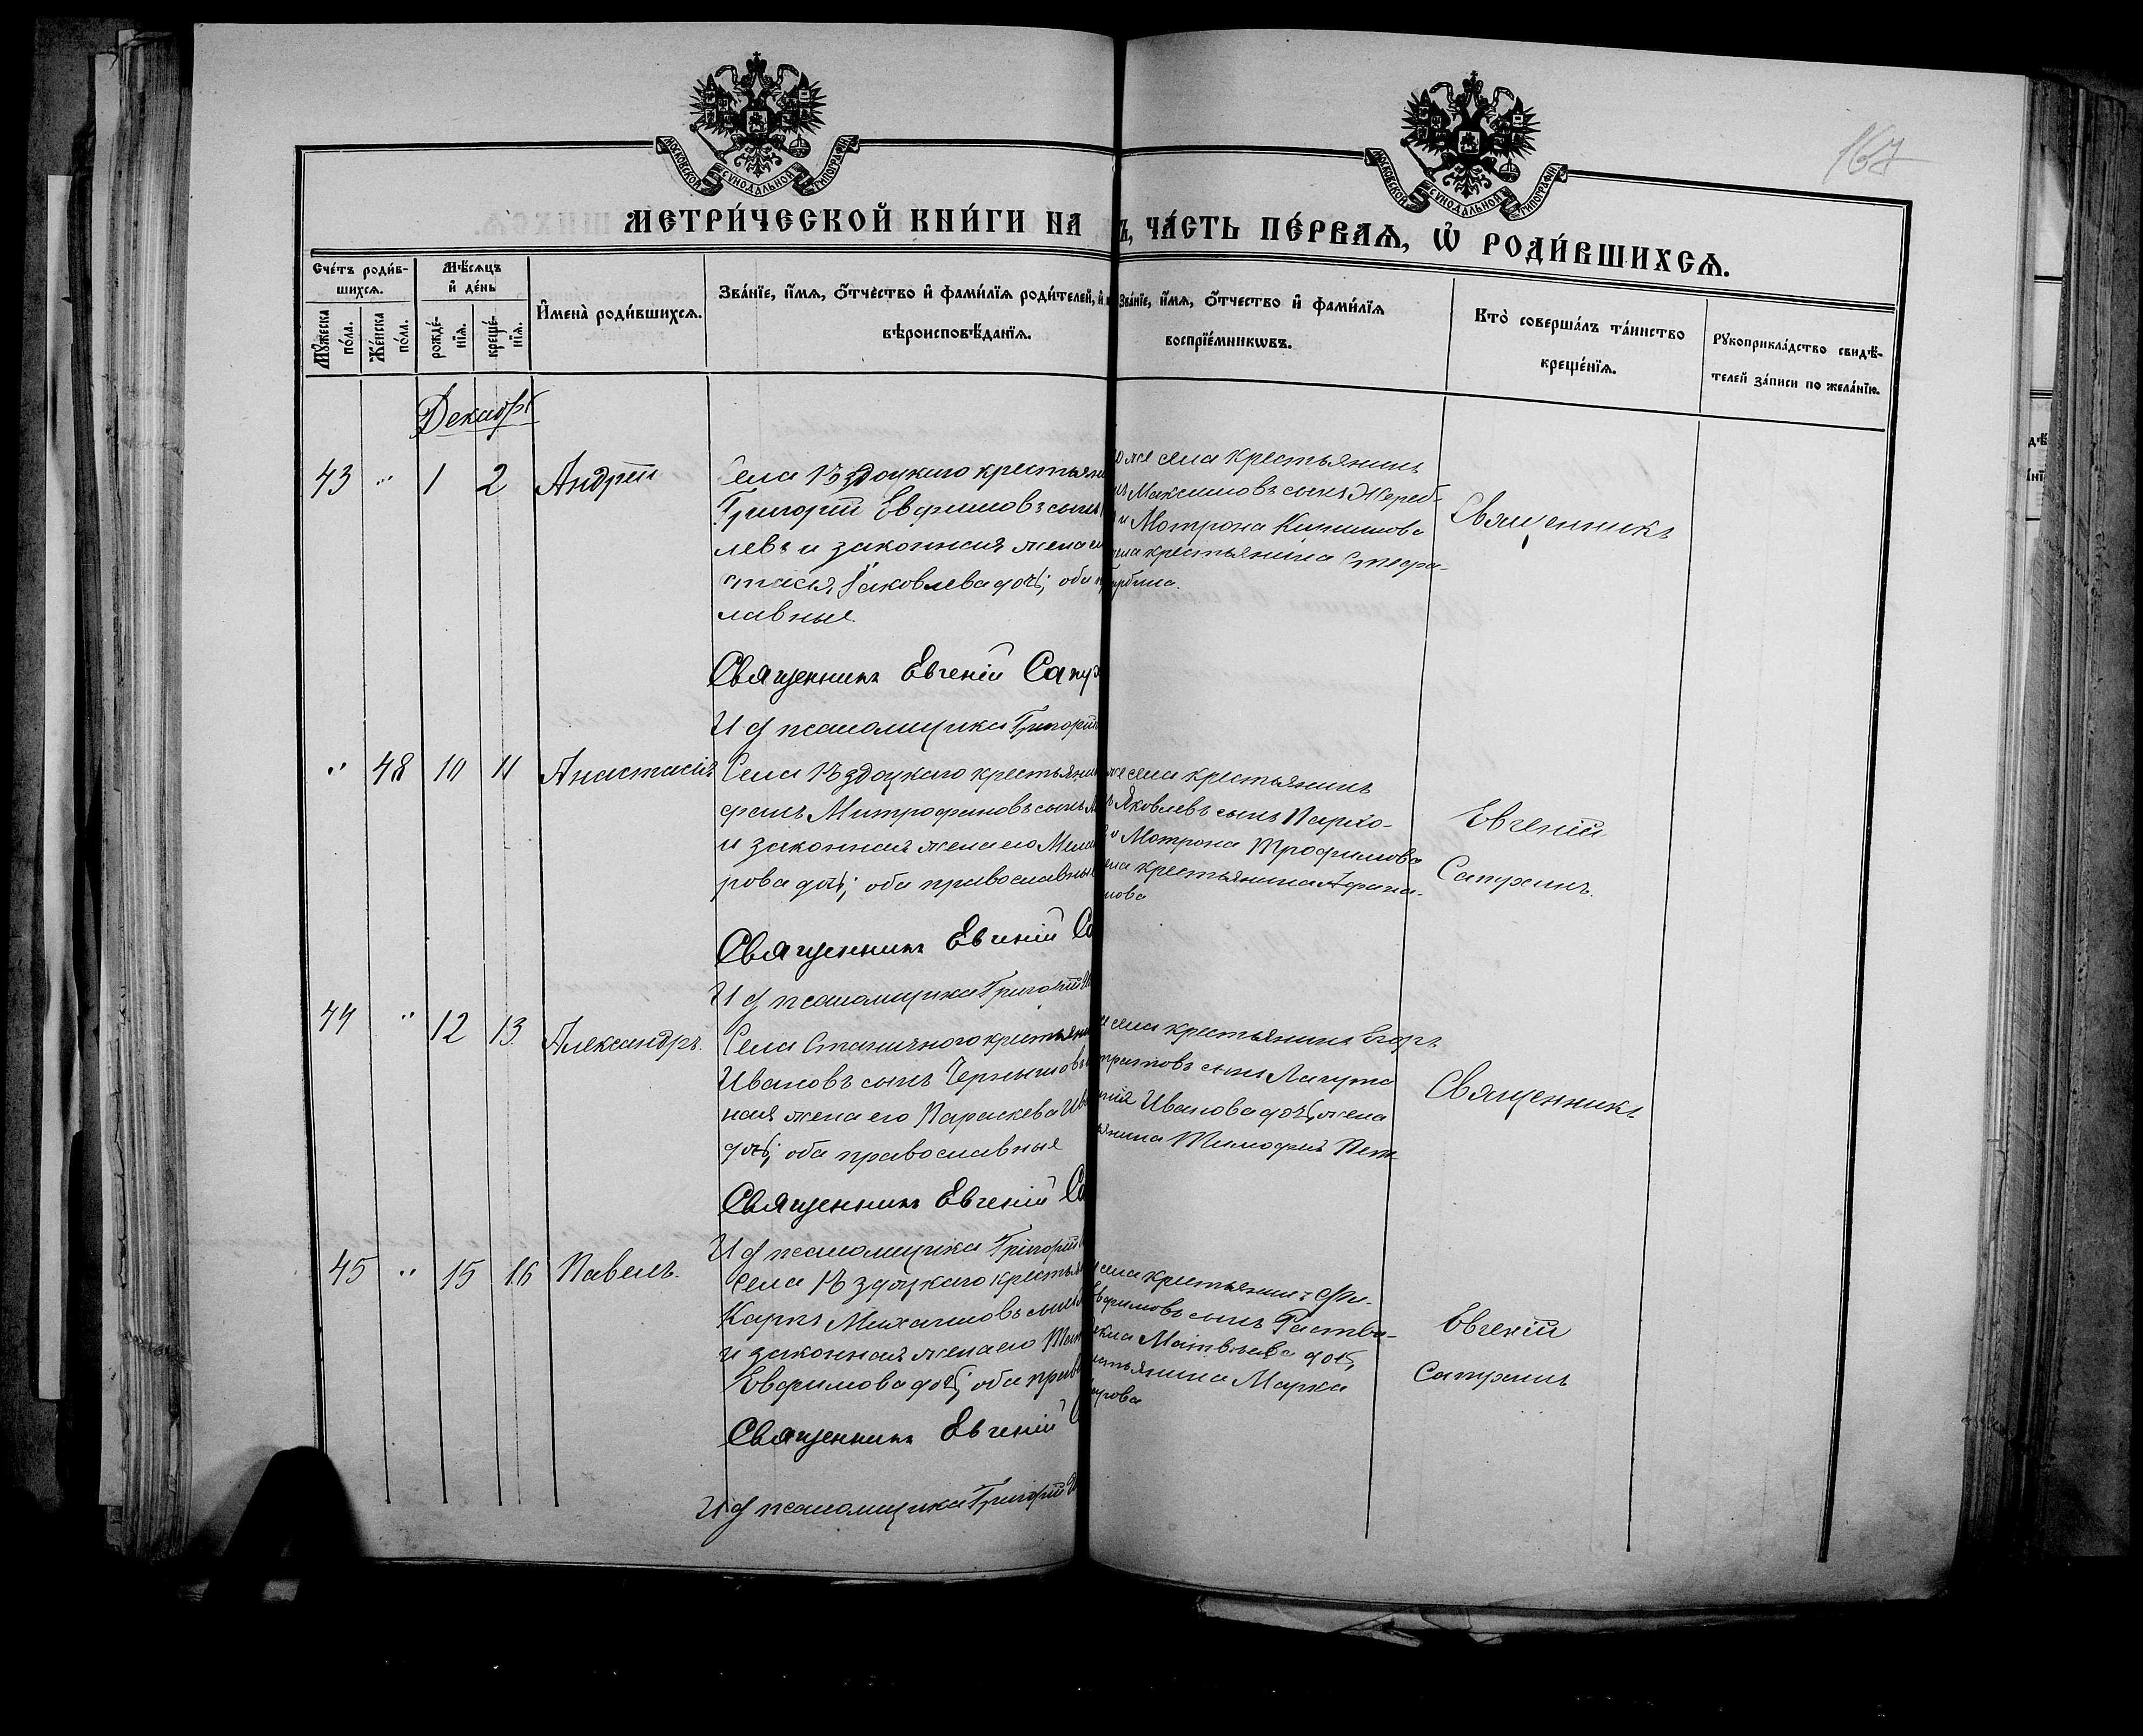 167
МОСКОВСКОЙ СУНОДАЛЬНОЙ ТИПОГРАФІИ
МОСКОВСКОЙ СУНОДАЛЬНОЙ ТИПОГРАФІИ
МЕТРИ́ЧЕСКОЙ КНИ́ГИ НА
Ъ, ЧА́СТЬ ПЕ́РВАѦ, Ѽ РОДИ́ВШИХСѦ.
Сче́тъ роди́в-
шихсѧ.
Мꙋ́жеска по́ла.
Же́нска по́ла.
Мѣ́сѧцъ
и҆ де́нь
рожде́-
нїѧ.
креще́-
нїѧ.
И҆мена̀ роди́вшихсѧ.
Зва́нїе, и҆́мѧ, ѻ҆́тчество и҆ фами́лїѧ роди́телей, и҆
вѣроисповѣ́данїѧ.
Зва́нїе, и҆́мѧ, ѻ҆́тчество и҆ фами́лїѧ
воспрїе́мникѡвъ.
Кто̀ соверша́лъ та́инство
креще́нїѧ.
Рꙋкоприкла́дство свидѣ́-
телей за́писи по жела́нїю.
Декабрь
43 " 1 2 Андрей
Села Ѣздоцкаго крестьян
Григорій Евфимовъ сынъ
левъ и законная жена е
стасія Іаковлева дочь; оба
лавные.
Священникъ Евгеній Сапу
И д псаломщика Григорій
же села крестьянинъ
Максимовъ сынъ Жереб-
и Мотрона
крестьянина Стефа-
Священникъ
" 48 10 11 Анастасія
Села Ѣздоцкаго крестьяни
фанъ Митрофановъ сынъ
и законная жена его Мела
рова дочь; оба православные
Священникъ Евгеній Са
И д псаломщика Григорій
же села крестьянинъ
Яковлевъ сынъ Пархо-
и Мотрона Трофимова
крестьянина Афана-
нова
Евгеній
44 " 12 13 Александръ.
Села Станичного крестьяни
Ивановъ сынъ Чернышовъ
ная жена его Параскева Ив
дочь; оба православные
Священникъ Евгеній Са
И д псаломщика Григорій
села крестьянинъ Егоръ
сынъ Лагута
Иванова дочь, жена
Тимофея Пет
Священникъ
45 " 15 16 Павелъ.
Села Ѣздоцкаго крестьян
Карпъ Михаиловъ сынъ
и законная жена его
Евфимова дочь; оба прав
Священникъ Евгеній
И д псаломщика Григорій
села крестьянинъ Фи-
Евфимовъ сынъ
Матвѣева дочь,
Марка
Евгеній